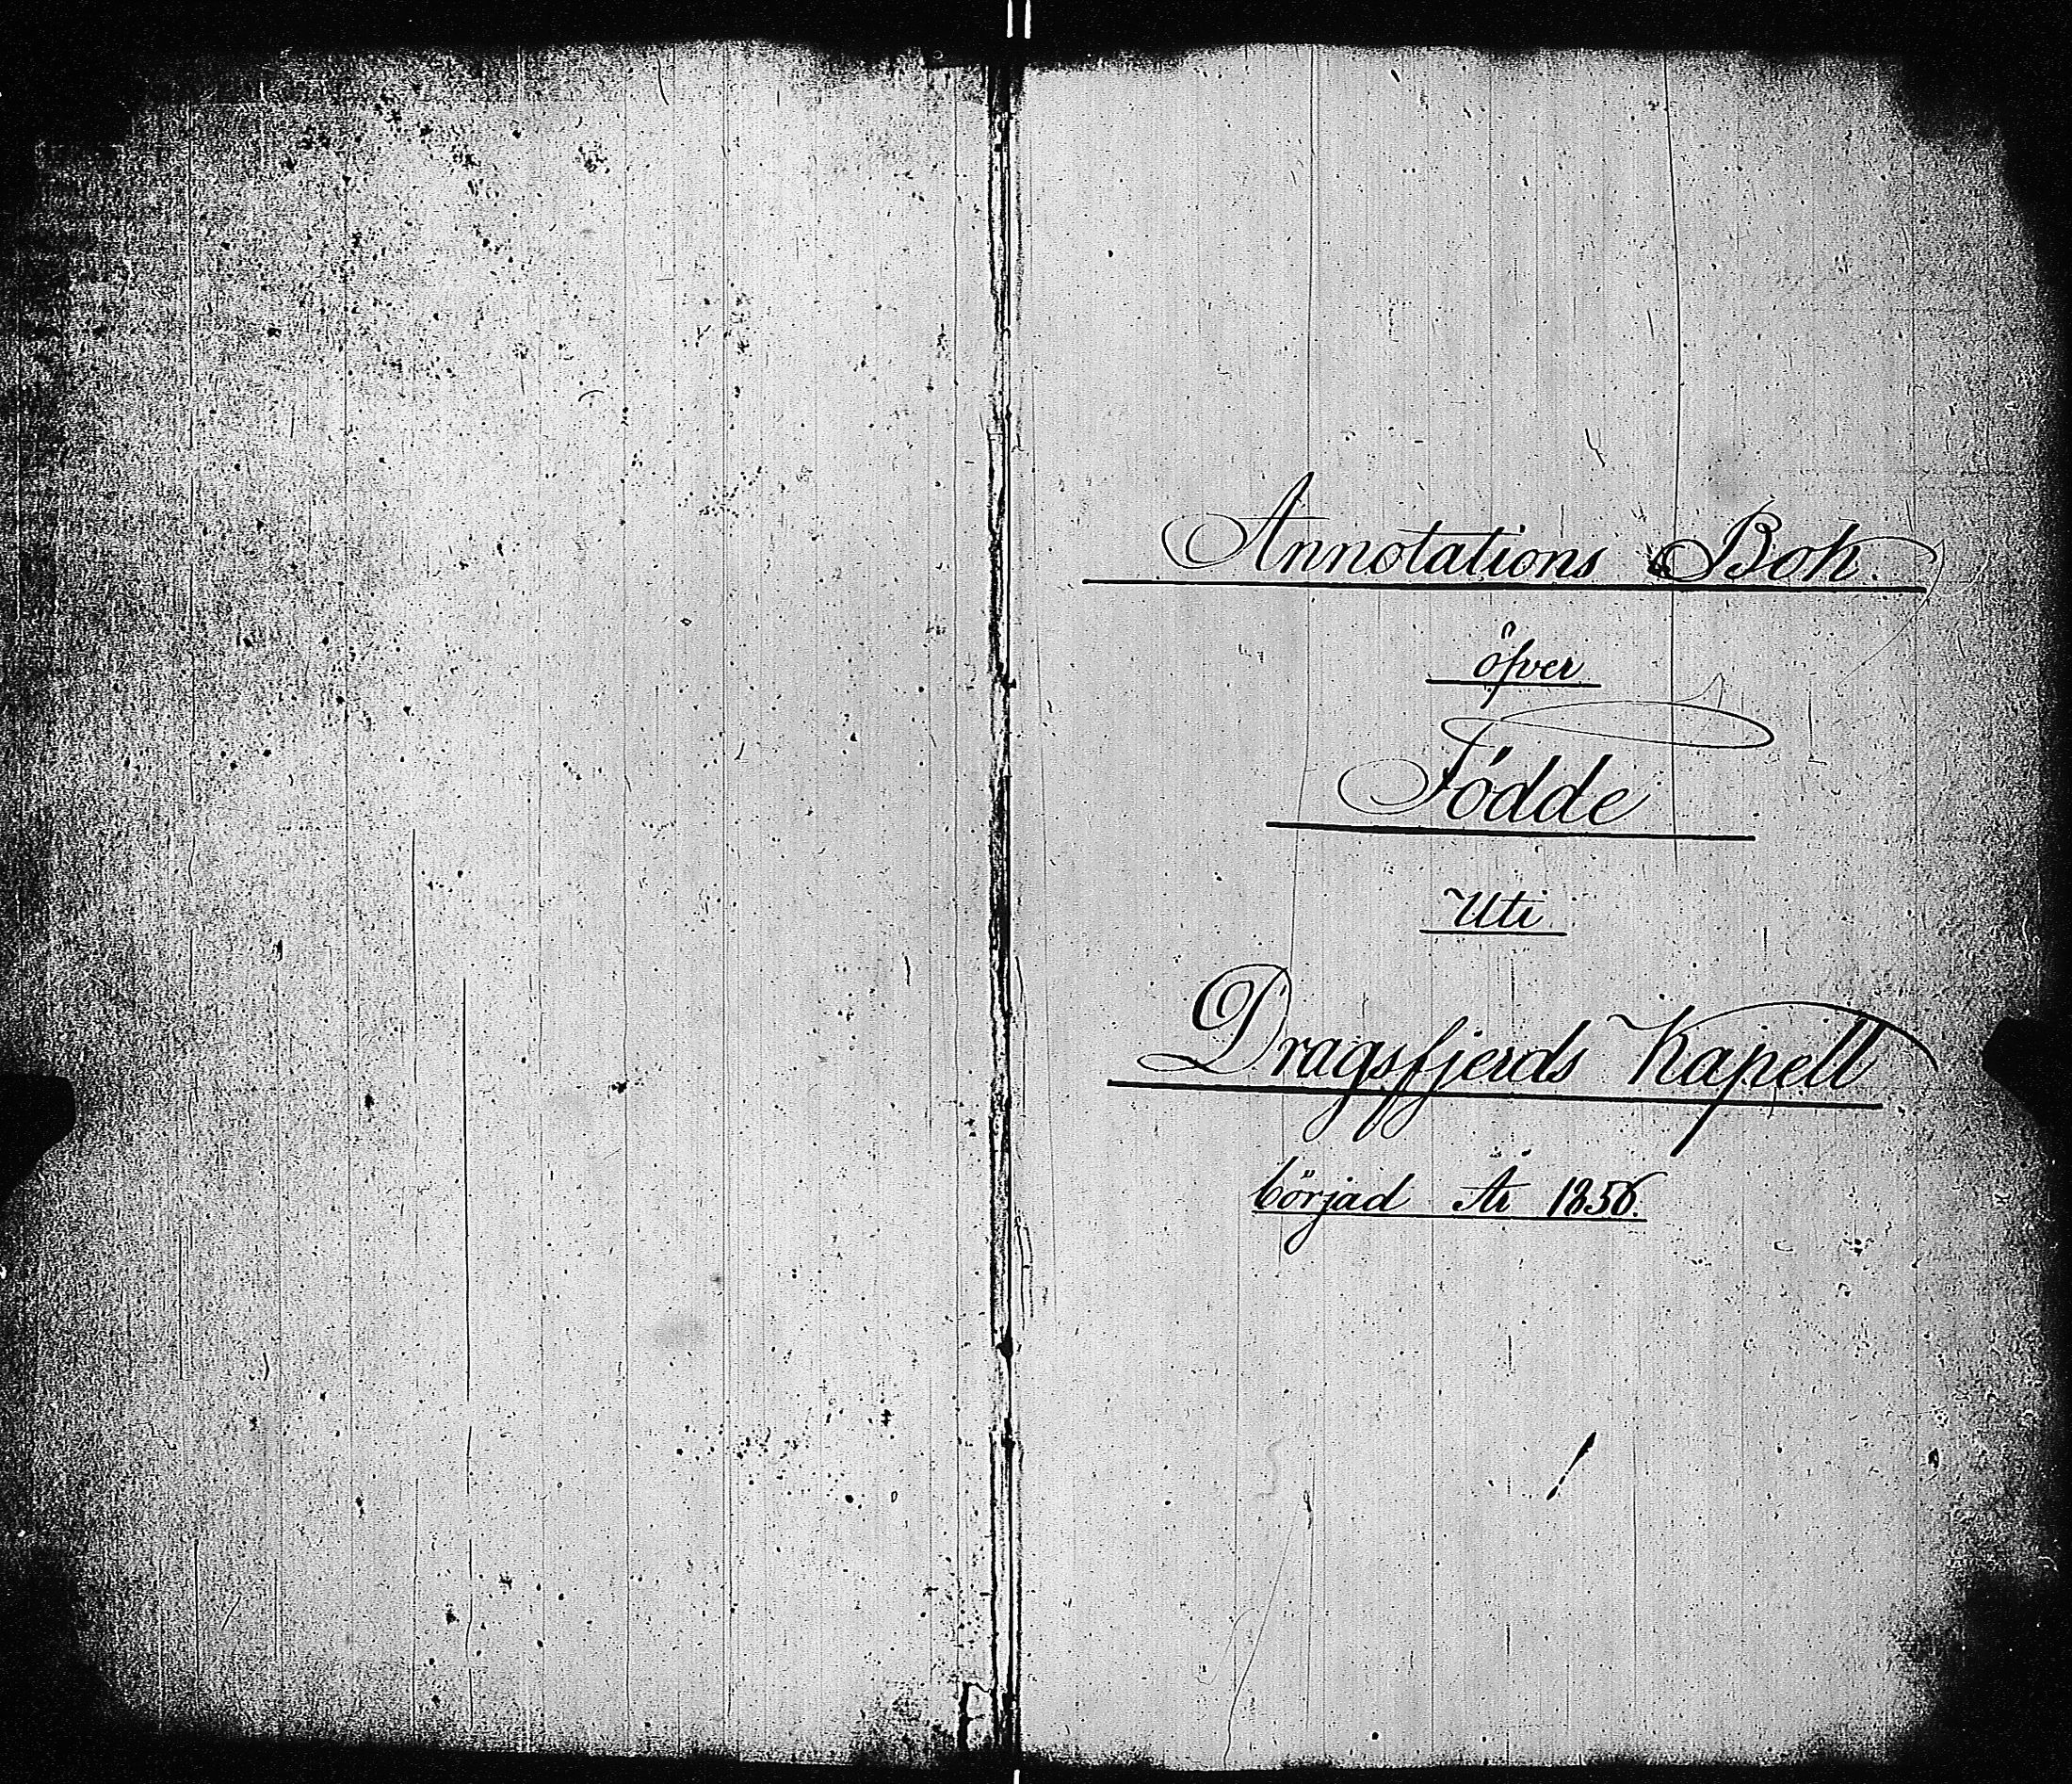 Annotations Bok.
öfver
Födde
Uti
Dragsfjerds Kapell
börjad År 1856.